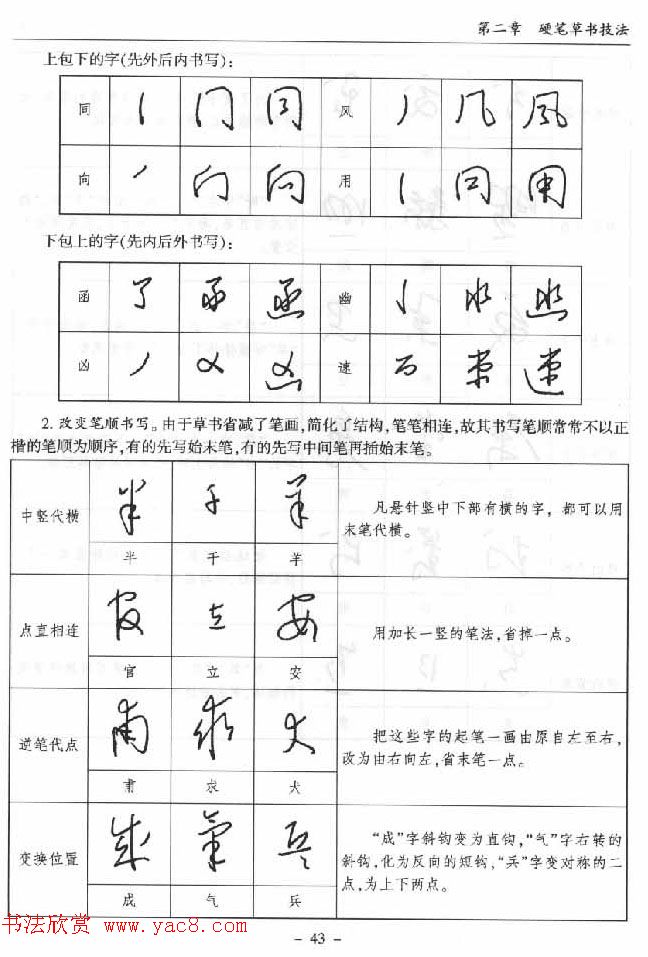 第二章 硬笔草书技法
上包下的字(先外后内书写):
同 风
向 用
下包上的字(先内后外书写):
函 幽
凶 速
2. 改变笔顺书写。由于草书省减了笔画,简化了结构,笔笔相连,故其书写笔顺常常不以正
楷的笔顺为顺序,有的先写始末笔,有的先写中间笔再插始末笔。
中竖代横
半 千 羊
半 千 羊
凡悬针竖中下部有横的字，都可以用
末笔代横。
点直相连
官 立 安
官 立 安
用加长一竖的笔法,省掉一点。
逆笔代点
甫 求 犬
甫 求 犬
把这些字的起笔一画由原自左至右,
改为由右向左,省末笔一点。
变换位置
成 气 兵
成 气 兵
“成”字斜钩变为直钩,“气”字右转的
斜钩,化为反向的短钩,“兵”字变对称的二
点,为上下两点。
书法欣赏 www.yac8.com
- 43 -